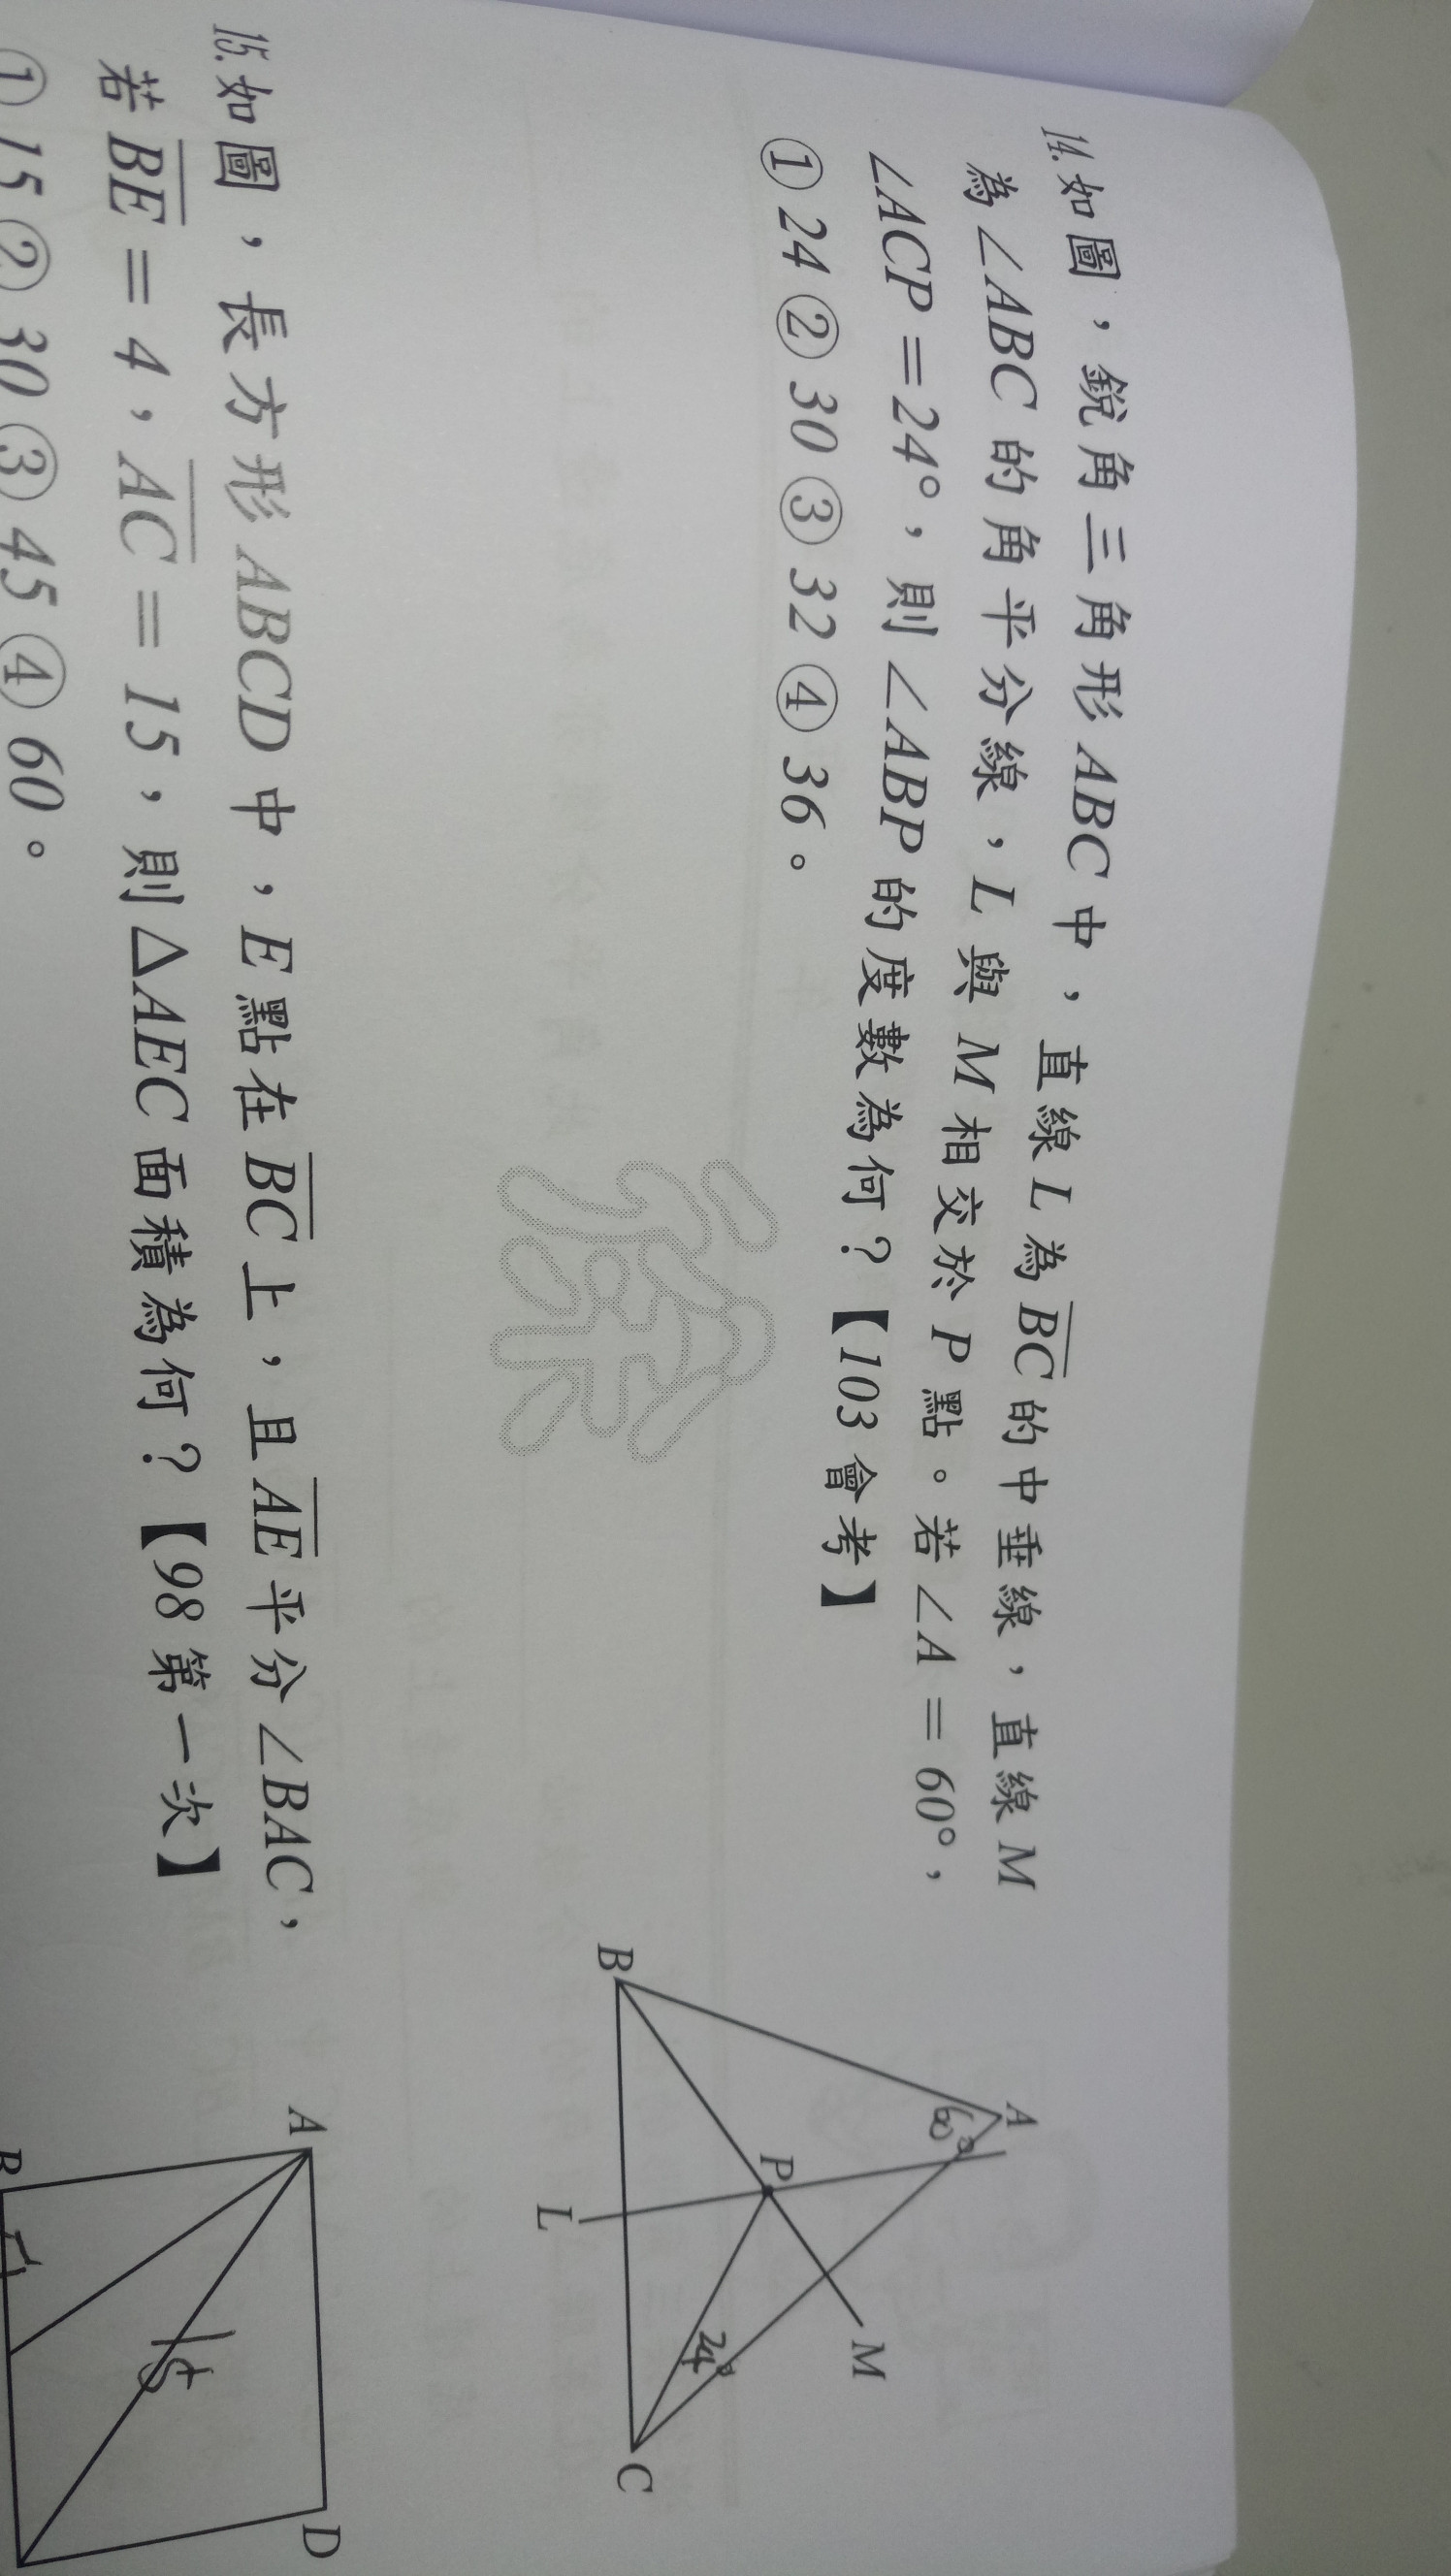 14.如圖，銳角三角形ABC中，直線L為BC的中垂線，直線M
為∠ABC的角平分線，L與M相交於P點。若∠A＝60°，
∠ACP＝24°，則∠ABP的度數為何？【103會考】
①24②30③32④36。
A
60°
P
M
B
24°
C
L
15.如圖，長方形ABCD中，E點在BC上，且AE平分∠BAC，
若BE＝4，AC＝15，則△AEC面積為何？【98第一次】
①15②30③45④60。
A
D
15
B